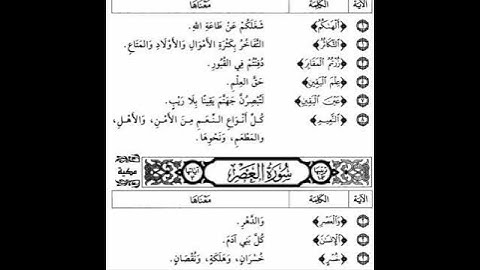 الآيَة الكَلِمَة مَعْنَاهَا
﴿أَلْهَىٰكُمُ﴾ شَغَلَكُمْ عَنْ طَاعَةِ اللهِ.
﴿التَّكَاثُرُ﴾ التَّفَاخُرُ بِكَثْرَةِ الأَمْوَالِ وَالأَوْلَادِ وَالمَتَاعِ.
﴿زُرْتُمُ الْمَقَابِرَ﴾ دُفِنْتُمْ فِي القُبُورِ.
﴿عِلْمَ الْيَقِينِ﴾ حَقَّ العِلْمِ.
﴿عَيْنَ الْيَقِينِ﴾ لَتُبْصِرُنَّ جَهَنَّمَ يَقِينًا بِلَا رَيْبٍ.
﴿النَّعِيمِ﴾ كُلُّ أَنْوَاعِ النِّعَمِ مِنَ الأَمْنِ، وَالأَهْلِ،
وَالمَطْعَمِ، وَنَحْوِهَا.
سُورَةُ الْعَصْرِ
مكية
الآيَة الكَلِمَة مَعْنَاهَا
﴿وَالْعَصْرِ﴾ وَالدَّهْرِ.
﴿الْإِنسَٰنَ﴾ كُلَّ بَنِي آدَمَ.
﴿خُسْرٍ﴾ خُسْرَانٍ، وَهَلَكَةٍ، وَنُقْصَانٍ.